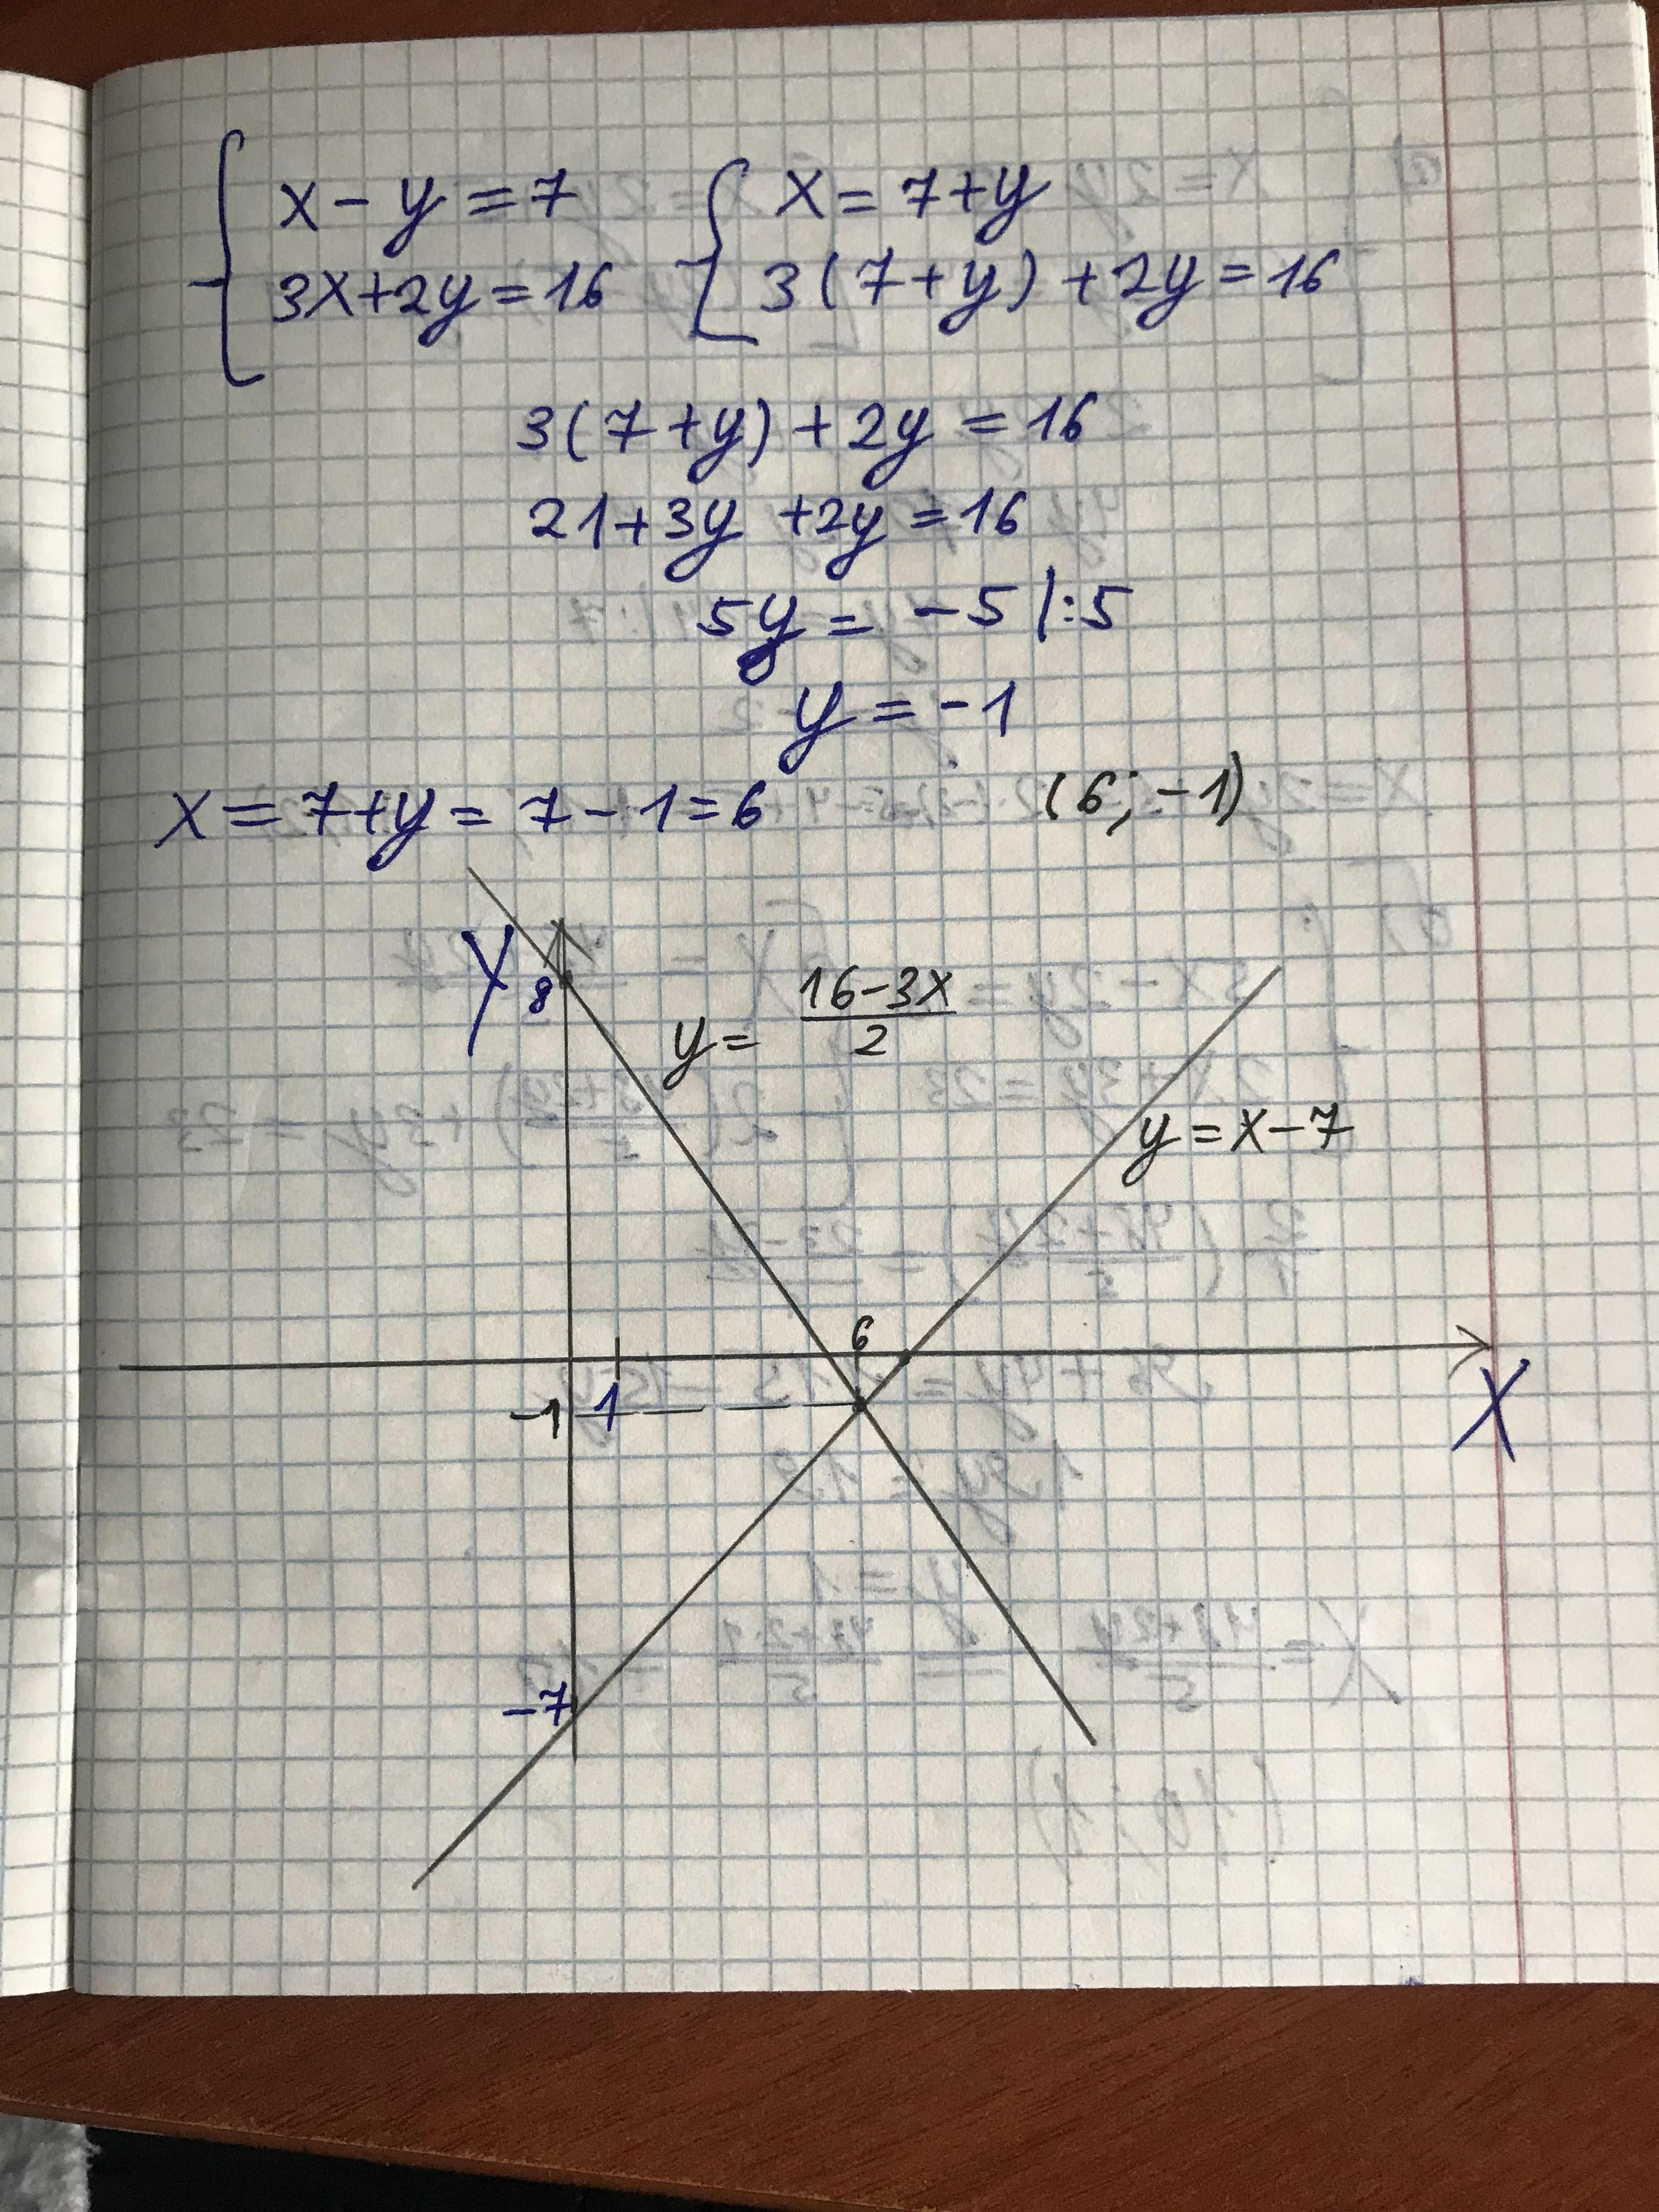 x - y = 7 x = 7+y
3x+2y = 16 3(7+y) +2y = 16
3(7+y) +2y = 16
21+3y +2y = 16
5y = -5 |:5
y = -1
x = 7+y = 7-1 = 6 (6; -1)
Y
8
y = (16-3x)/2
y = x-7
6
-1 1
X
-7